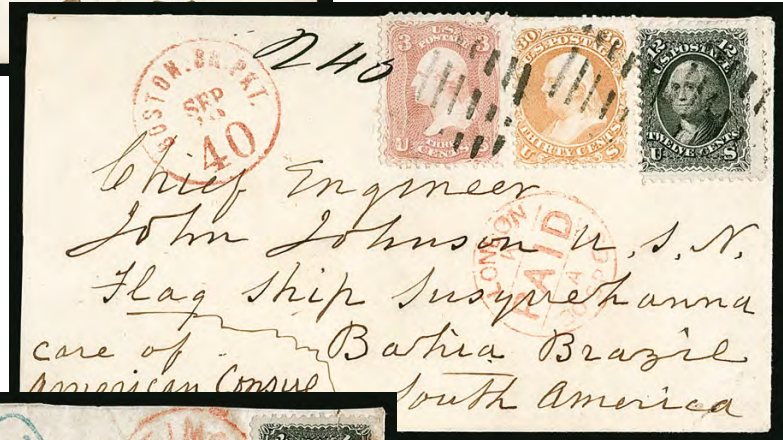 BOSTON. BR. PKT.
SEP
40
240
3 3
U.S.
POSTAGE
THREE
U CENTS S
30 30
U.S. POSTAGE
THIRTY CENTS
U S
12 12
U.S. POSTAGE
TWELVE CENTS
U S
Chief Engineer
John Johnson U.S.N.
LONDON
PAID
Flag Ship Susquehanna
care of Bahia Brazil
American Consul South America